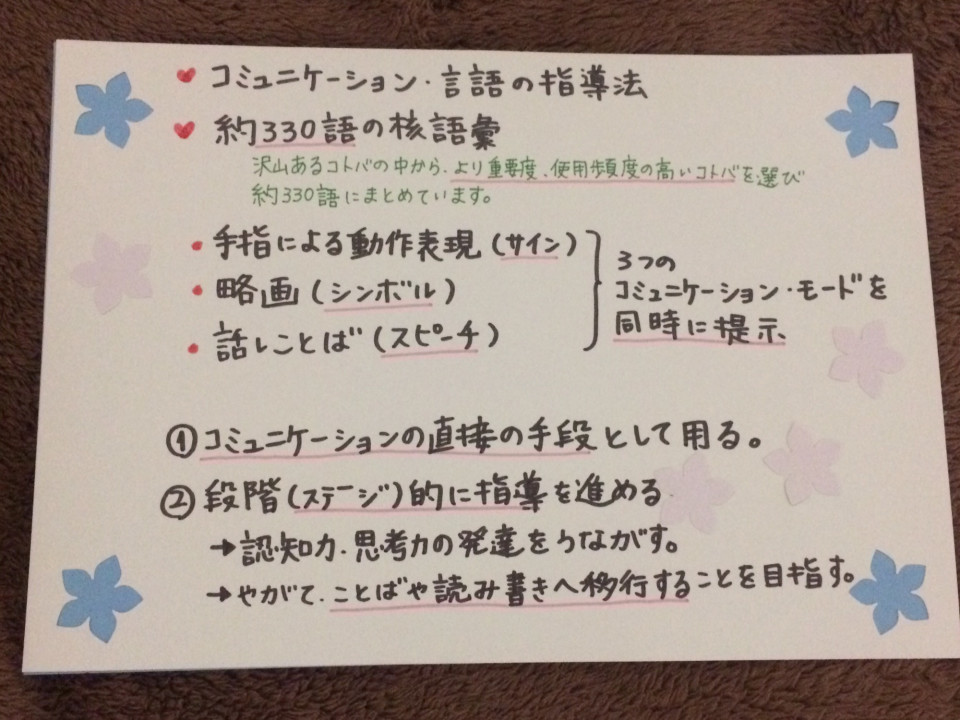 コミュニケーション・言語の指導法
約330語の核語彙
沢山あるコトバの中から、より重要度、使用頻度の高いコトバを選び
約330語にまとめています。
・手指による動作表現(サイン)
・略画(シンボル)
・話しことば(スピーチ)
3つの
コミュニケーション・モードを
同時に提示
①コミュニケーションの直接の手段として用る。
②段階(ステージ)的に指導を進める
→認知力、思考力の発達をうながす。
→やがて、ことばや読み書きへ移行することを目指す。